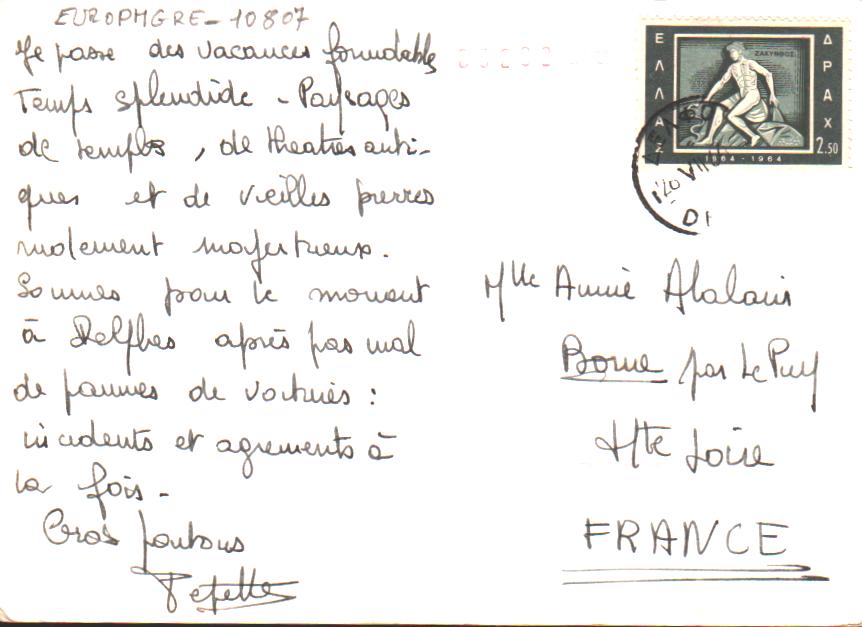 EUROPMGRE-10807
Je passe des vacances formidables
Temps splendide - Paysages
de temples, de theatres anti-
ques et de vieilles pierres
rudement majestueux.
Sommes pour le moment
à Delphes après pas mal
de pannes de voitures :
incidents et agrements à
la fois -
Gros
Pepette
ΕΛΛΑΣ
ΔΡΑΧ
2.50
ΖΑΚΥΝΘΟΣ
1864 - 1964
20 VII 64
Mlle Annie
Borne par Le Puy
Hte Loire
FRANCE